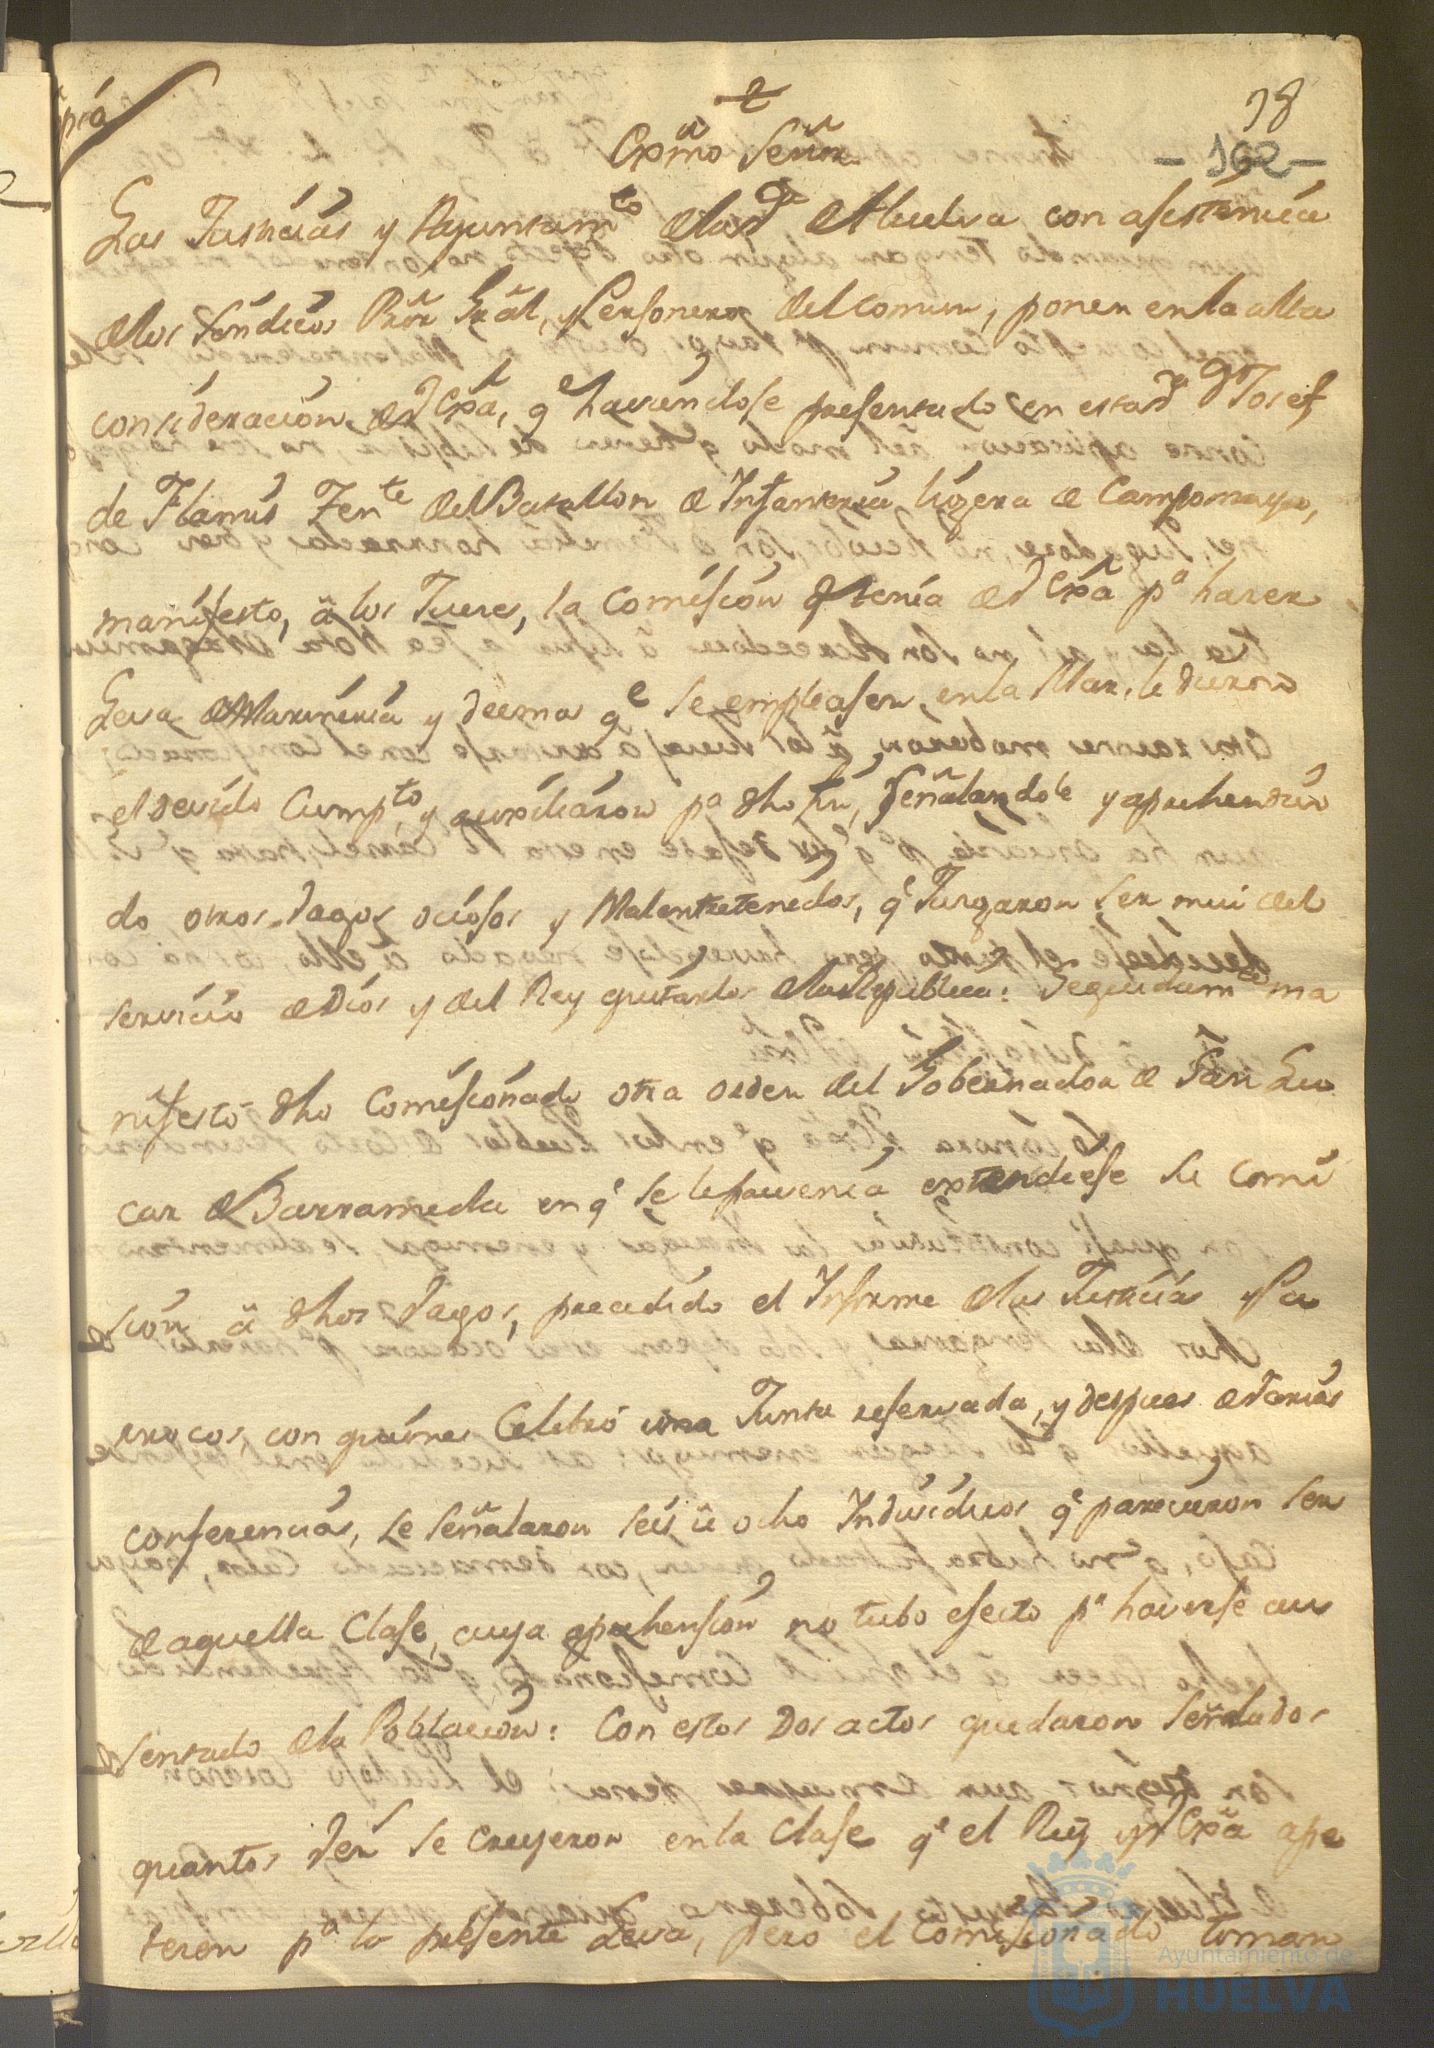 pia
78
-162-
Exmo Señor
Las Justicias y Ayuntamto dela Va de Huelva con asistencia
delos Síndicos Prõr Grãl, y Personero del comun, ponen en la alta
consideración de V Exã, qe haviendose presentado en esta Va Dn Josef
de Flanis Tente del Batallon de Infanteria ligera de Campomayor,
manifesto, â los Jueces, la Comisión q tenía de V Exã pa hacer
Leva de Marineria y demas qe se empleasen en la Mar, le dieron
el devido Cumpto y auxiliaron pa dho fin, señalandole y aprehendien
do otros Vagos ociosos y Malentretenidos, qe Juzgaron ser mui del
servicio de Dios y del Rey quitarlos dela Republica: Seguidamte ma
nifestó dho Comisionado otra orden del Gobernador de San Lu
car de Barrameda en qe se le prevenia extendiese su comi
sion â dhos Vagos, precedido el Informe delas Justicias y Pa
rrocos, con quienes Celebró una Junta reservada, y despues de varias
conferencias, se señalaron seis û ocho Individuos qe parecieron ser
de aquella Clase, cuya aprehension no tubo efecto pr haverse au
sentado dela Poblacion: Con estos dos actos quedaron señalados
quantos se creyeron en la Clase qe el Rey y V Exã ape
tecen pa la presente Leva, pero el Comisionado toman
Ayuntamiento de
HUELVA